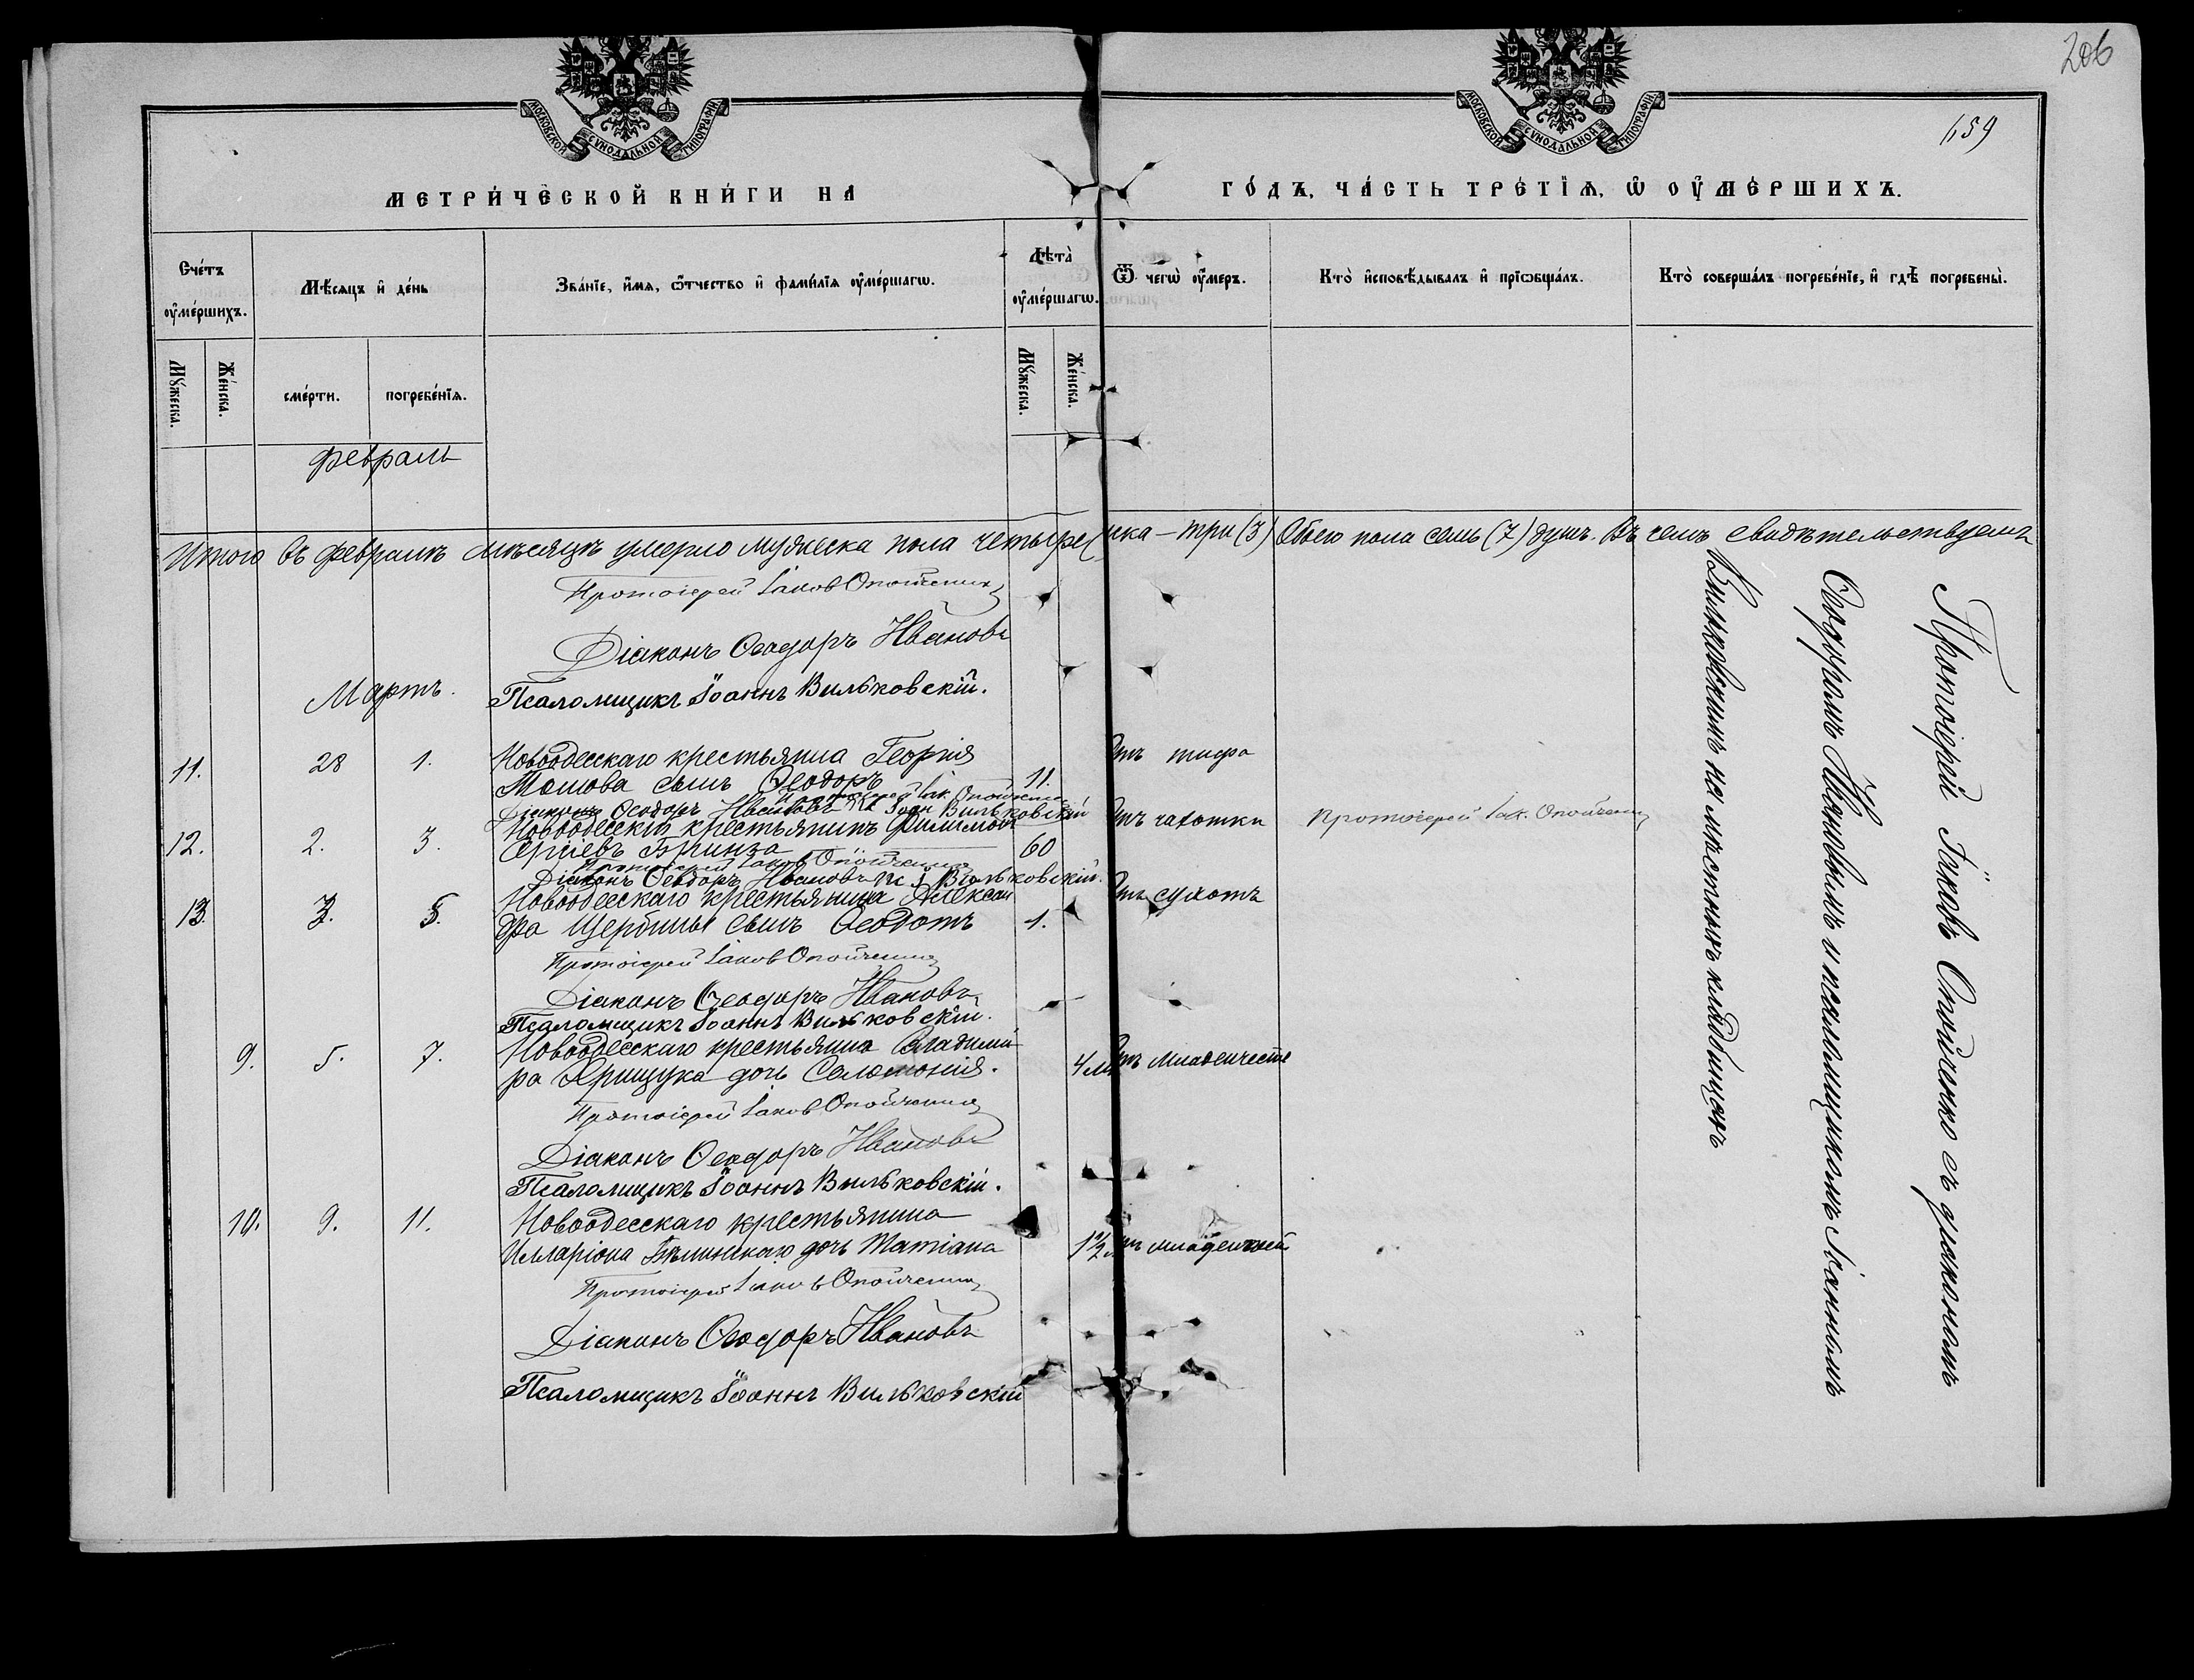 206
МОСКОВСКОЙ СѴНОДАЛЬНОЙ ТИПОГРАФІИ
МОСКОВСКОЙ СѴНОДАЛЬНОЙ ТИПОГРАФІИ
159
МЕТРИ́ЧЕСКОЙ КНИ́ГИ НА
ГО́ДЪ, ЧА́СТЬ ТРЕ́ТЇѦ, Ѡ ОУ҆МЕ́РШИХЪ.
Сче́тъ оу҆ме́ршихъ.
Мѣ́сяцъ и҆ де́нь
Зва́нїе, и҆́мя, ѻ҆́тчество и҆ фами́лїя оу҆ме́ршагѡ.
Лѣта̀ оу҆ме́ршагѡ.
Ѿ чегѡ̀ оу҆́меръ.
Кто̀ и҆сповѣ́дывалъ и҆ прїѡбща́лъ.
Кто̀ соверша́лъ погребе́нїе, и҆ гдѣ̀ погребены̀.
Мꙋ́жеска.
Же́нска.
сме́рти.
погребе́нїя.
Мꙋ́жеска.
Же́нска.
февраль
Итого въ февралѣ мѣсяцѣ умерло мужеска пола четыре ска – три (3) Обоего пола семь (7) душъ. Въ чемъ свидѣтельствуемъ
Протоіерей Іаков Опойченко
Діаконъ Ѳеодоръ Ивановъ
Мартъ. Псаломщикъ Іоаннъ Вильковскій.
11. 28 1. Новоодесскаго крестьянина Георгія Отъ тифа
сынъ Ѳеодоръ 11.
Протоіерей Іак. Опойченко
Діаконъ Ѳеодоръ Ивановъ Пс Іоан Вильковскій
12. 2. 3. Новоодесскій крестьянинъ Филимонъ Отъ чахотки Протоіерей Іак. Опойченко
Сергіевъ Бринза 60
Протоіерей Іаков Опойченко
Діаконъ Ѳеодоръ Ивановъ Пс І Вильковскій.
13. 3. 5. Новоодесскаго крестьянина Алексан Отъ сухотъ
дра Щербины сынъ Ѳеодотъ 1.
Протоіерей Іаков Опойченко
Діаконъ Ѳеодоръ Ивановъ
Псаломщикъ Іоаннъ Вильковскій.
9. 5. 7. Новоодесскаго крестьянина Владими
ра Крищука дочь Соломонія. 4 м Отъ младенчест
Протоіерей Іаков Опойченко
Діаконъ Ѳеодоръ Ивановъ
Псаломщикъ Іоаннъ Вильковскій.
10. 9. 11. Новоодесскаго крестьянина
Илларіона дочь Татіана 1 1/2
Протоіерей Іаков Опойченко
Діаконъ Ѳеодоръ Ивановъ
Псаломщикъ Іоаннъ Вильковскій
Протоіерей Іаковъ Опойченко съ діакономъ
Ѳеодоромъ Ивановымъ и псаломщикомъ Іоанномъ
Вильковскимъ на мѣстномъ кладбищѣ